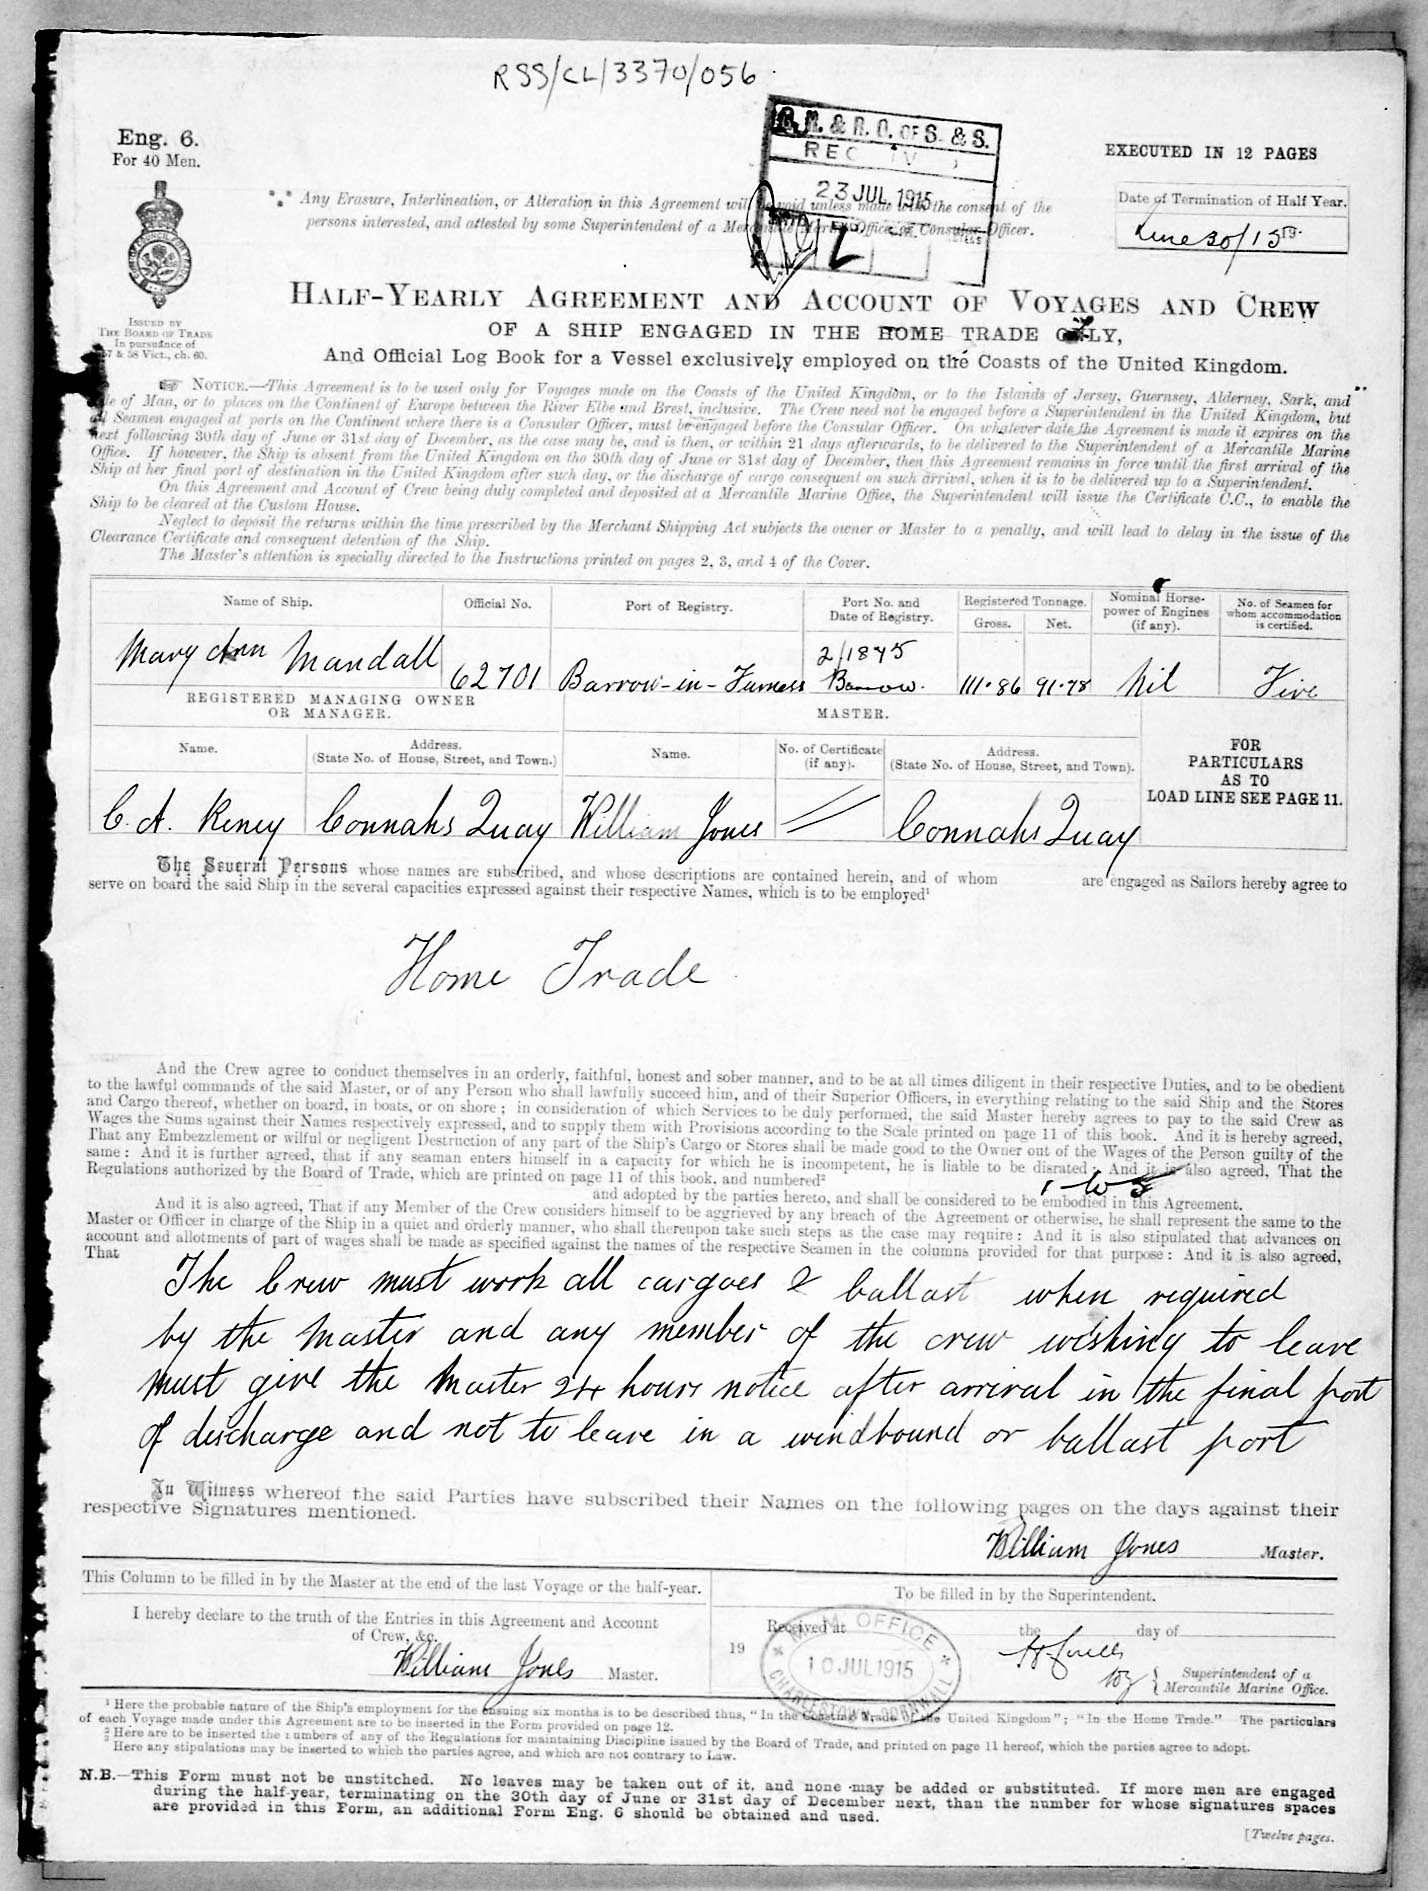 RSS/CL/3370/056
Eng. 6.
For 40 Men.
R. N. & R. O. OF S. & S.
23 JUL 1915
EXECUTED IN 12 PAGES
Any Erasure, Interlineation, or Alteration in this Agreement will be void unless made with the consent of the
persons interested, and attested by some Superintendent of a Mercantile Marine Office or Consular Officer.
Date of Termination of Half Year.
June 30/15
HALF-YEARLY AGREEMENT AND ACCOUNT OF VOYAGES AND CREW
OF A SHIP ENGAGED IN THE HOME TRADE ONLY,
And Official Log Book for a Vessel exclusively employed on the Coasts of the United Kingdom.
ISSUED BY
THE BOARD OF TRADE
In pursuance of
57 & 58 Vict., ch. 60.
NOTICE.—This Agreement is to be used only for Voyages made on the Coasts of the United Kingdom, or to the Islands of Jersey, Guernsey, Alderney, Sark, and
Isle of Man, or to places on the Continent of Europe between the River Elbe and Brest, inclusive. The Crew need not be engaged before a Superintendent in the United Kingdom, but
all Seamen engaged at ports on the Continent where there is a Consular Officer, must be engaged before the Consular Officer. On whatever date the Agreement is made it expires on the
next following 30th day of June or 31st day of December, as the case may be, and is then, or within 21 days afterwards, to be delivered to the Superintendent of a Mercantile Marine
Office. If however, the Ship is absent from the United Kingdom on the 30th day of June or 31st day of December, then this Agreement remains in force until the first arrival of the
Ship at her final port of destination in the United Kingdom after such day, or the discharge of cargo consequent on such arrival, when it is to be delivered up to a Superintendent.
On this Agreement and Account of Crew being duly completed and deposited at a Mercantile Marine Office, the Superintendent will issue the Certificate C.C., to enable the
Ship to be cleared at the Custom House.
Neglect to deposit the returns within the time prescribed by the Merchant Shipping Act subjects the owner or Master to a penalty, and will lead to delay in the issue of the
Clearance Certificate and consequent detention of the Ship.
The Master's attention is specially directed to the Instructions printed on pages 2, 3, and 4 of the Cover.
Name of Ship. Official No. Port of Registry. Port No. and Date of Registry. Registered Tonnage. Gross. Net. Nominal Horse-power of Engines (if any). No. of Seamen for whom accommodation is certified.
Mary Ann Mandall 62701 Barrow-in-Furness 2/1875 Barrow. 111.86 91.78 Nil Five
REGISTERED MANAGING OWNER
OR MANAGER.
MASTER.
Name. Address. (State No. of House, Street, and Town.) Name. No. of Certificate (if any). Address. (State No. of House, Street, and Town).
FOR
PARTICULARS
AS TO
LOAD LINE SEE PAGE 11.
C. A. Reney Connahs Quay William Jones Connahs Quay
The Several Persons whose names are subscribed, and whose descriptions are contained herein, and of whom are engaged as Sailors hereby agree to
serve on board the said Ship in the several capacities expressed against their respective Names, which is to be employed¹
Home Trade
And the Crew agree to conduct themselves in an orderly, faithful, honest and sober manner, and to be at all times diligent in their respective Duties, and to be obedient
to the lawful commands of the said Master, or of any Person who shall lawfully succeed him, and of their Superior Officers, in everything relating to the said Ship and the Stores
and Cargo thereof, whether on board, in boats, or on shore; in consideration of which Services to be duly performed, the said Master hereby agrees to pay to the said Crew as
Wages the Sums against their Names respectively expressed, and to supply them with Provisions according to the Scale printed on page 11 of this book. And it is hereby agreed,
That any Embezzlement or wilful or negligent Destruction of any part of the Ship's Cargo or Stores shall be made good to the Owner out of the Wages of the Person guilty of the
same: And it is further agreed, that if any seaman enters himself in a capacity for which he is incompetent, he is liable to be disrated: And it is also agreed, That the
Regulations authorized by the Board of Trade, which are printed on page 11 of this book, and numbered² 1 to 5
and adopted by the parties hereto, and shall be considered to be embodied in this Agreement.
And it is also agreed, That if any Member of the Crew considers himself to be aggrieved by any breach of the Agreement or otherwise, he shall represent the same to the
Master or Officer in charge of the Ship in a quiet and orderly manner, who shall thereupon take such steps as the case may require: And it is also stipulated that advances on
account and allotments of part of wages shall be made as specified against the names of the respective Seamen in the columns provided for that purpose: And it is also agreed,
That
The Crew must work all cargoes & ballast when required
by the Master and any member of the crew wishing to leave
must give the Master 24 hours notice after arrival in the final port
of discharge and not to leave in a windbound or ballast port
In Witness whereof the said Parties have subscribed their Names on the following pages on the days against their
respective Signatures mentioned.
William Jones Master.
This Column to be filled in by the Master at the end of the last Voyage or the half-year.
To be filled in by the Superintendent.
I hereby declare to the truth of the Entries in this Agreement and Account
of Crew, &c.
William Jones Master.
Received at the day of
19
M. M. OFFICE
10 JUL 1915
CHARLESTOWN CORNWALL
Superintendent of a
Mercantile Marine Office.
¹ Here the probable nature of the Ship's employment for the ensuing six months is to be described thus, "In the Coasting Trade of the United Kingdom"; "In the Home Trade." The particulars
of each Voyage made under this Agreement are to be inserted in the Form provided on page 12.
² Here are to be inserted the numbers of any of the Regulations for maintaining Discipline issued by the Board of Trade, and printed on page 11 hereof, which the parties agree to adopt.
³ Here any stipulations may be inserted to which the parties agree, and which are not contrary to Law.
N.B.—This Form must not be unstitched. No leaves may be taken out of it, and none may be added or substituted. If more men are engaged
during the half-year, terminating on the 30th day of June or 31st day of December next, than the number for whose signatures spaces
are provided in this Form, an additional Form Eng. 6 should be obtained and used.
[Twelve pages.